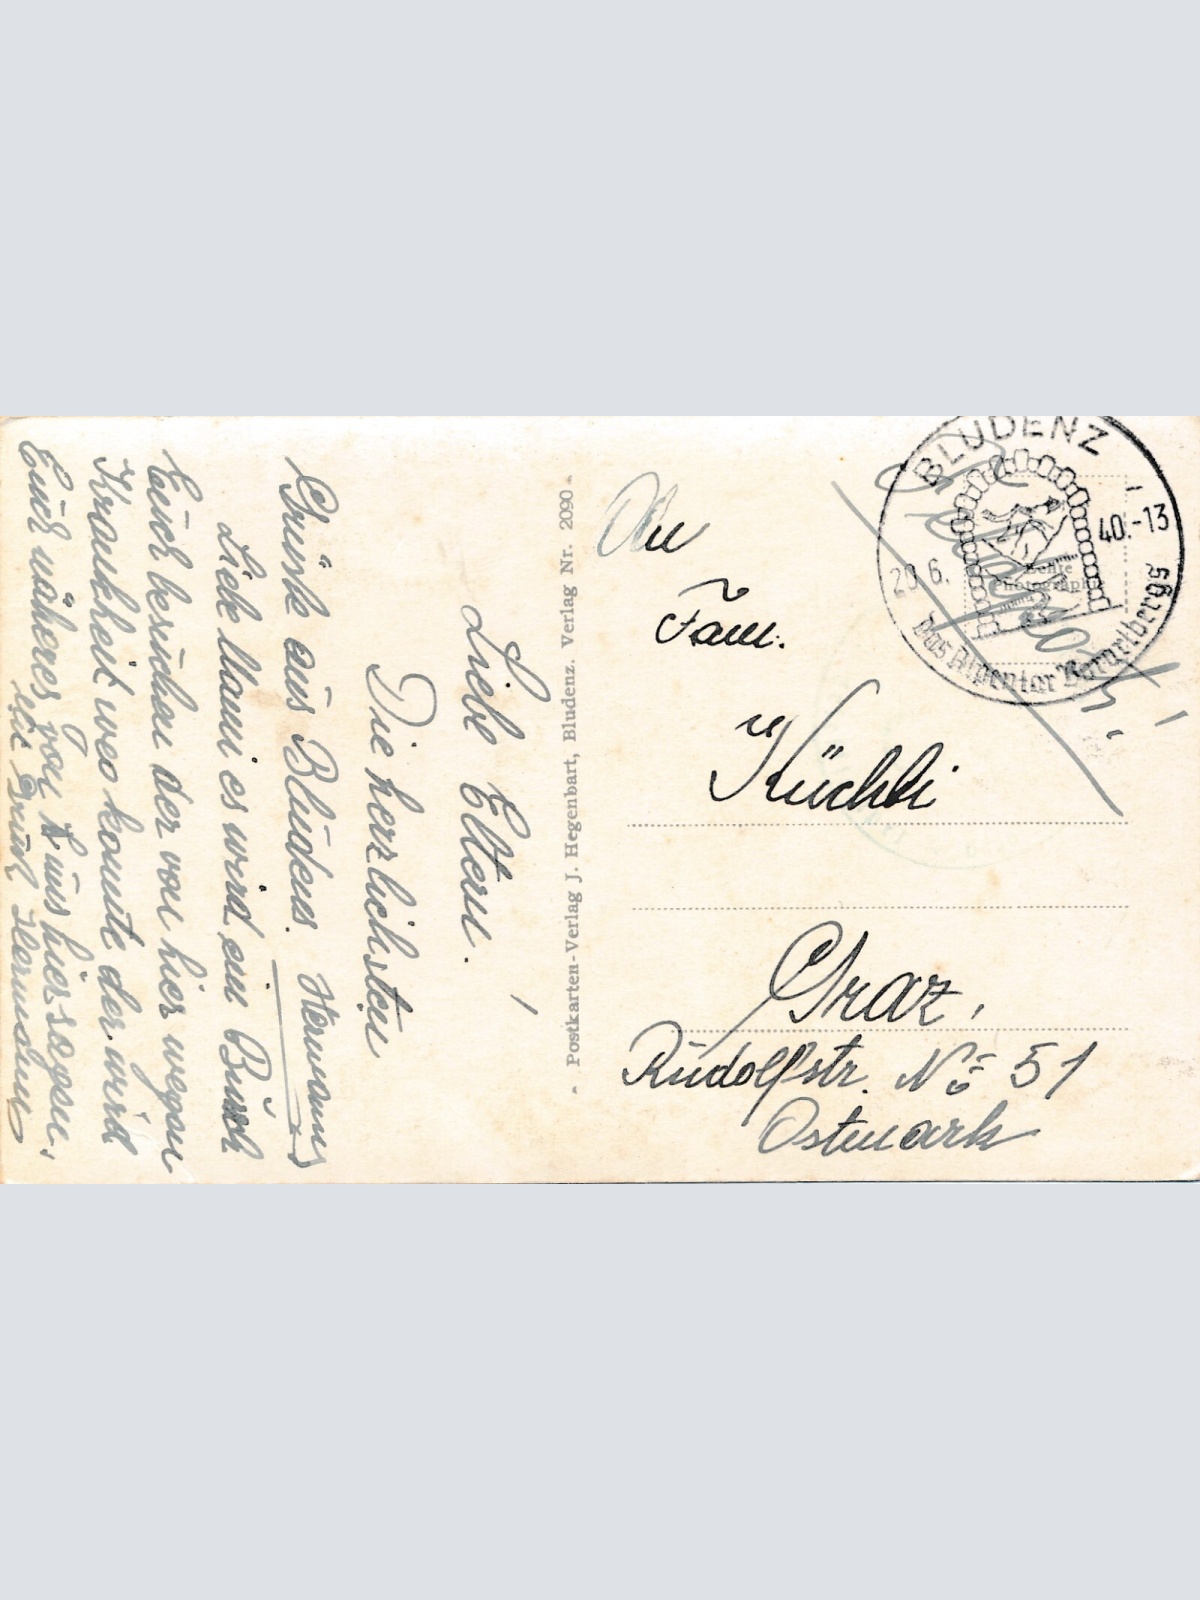 Liebe Eltern.
Die herzlichsten
Grüße aus Bludenz. Hermann
Liebe Mami es wird ein Bursch
Euch besuchen der von hier wegen
Krankheit weg konnte der wird
Euch näheres von uns hier sagen.
Hermann
- Postkarten-Verlag J. Hegenbart, Bludenz. Verlag Nr. 2090 -
BLUDENZ
20.6. 40.-13
Das Alpentor Vorarlbergs
Echte
Photographie
Feldpost!
An
Fam.
Küchli
Graz,
Rudolfstr. No 51
Ostmark